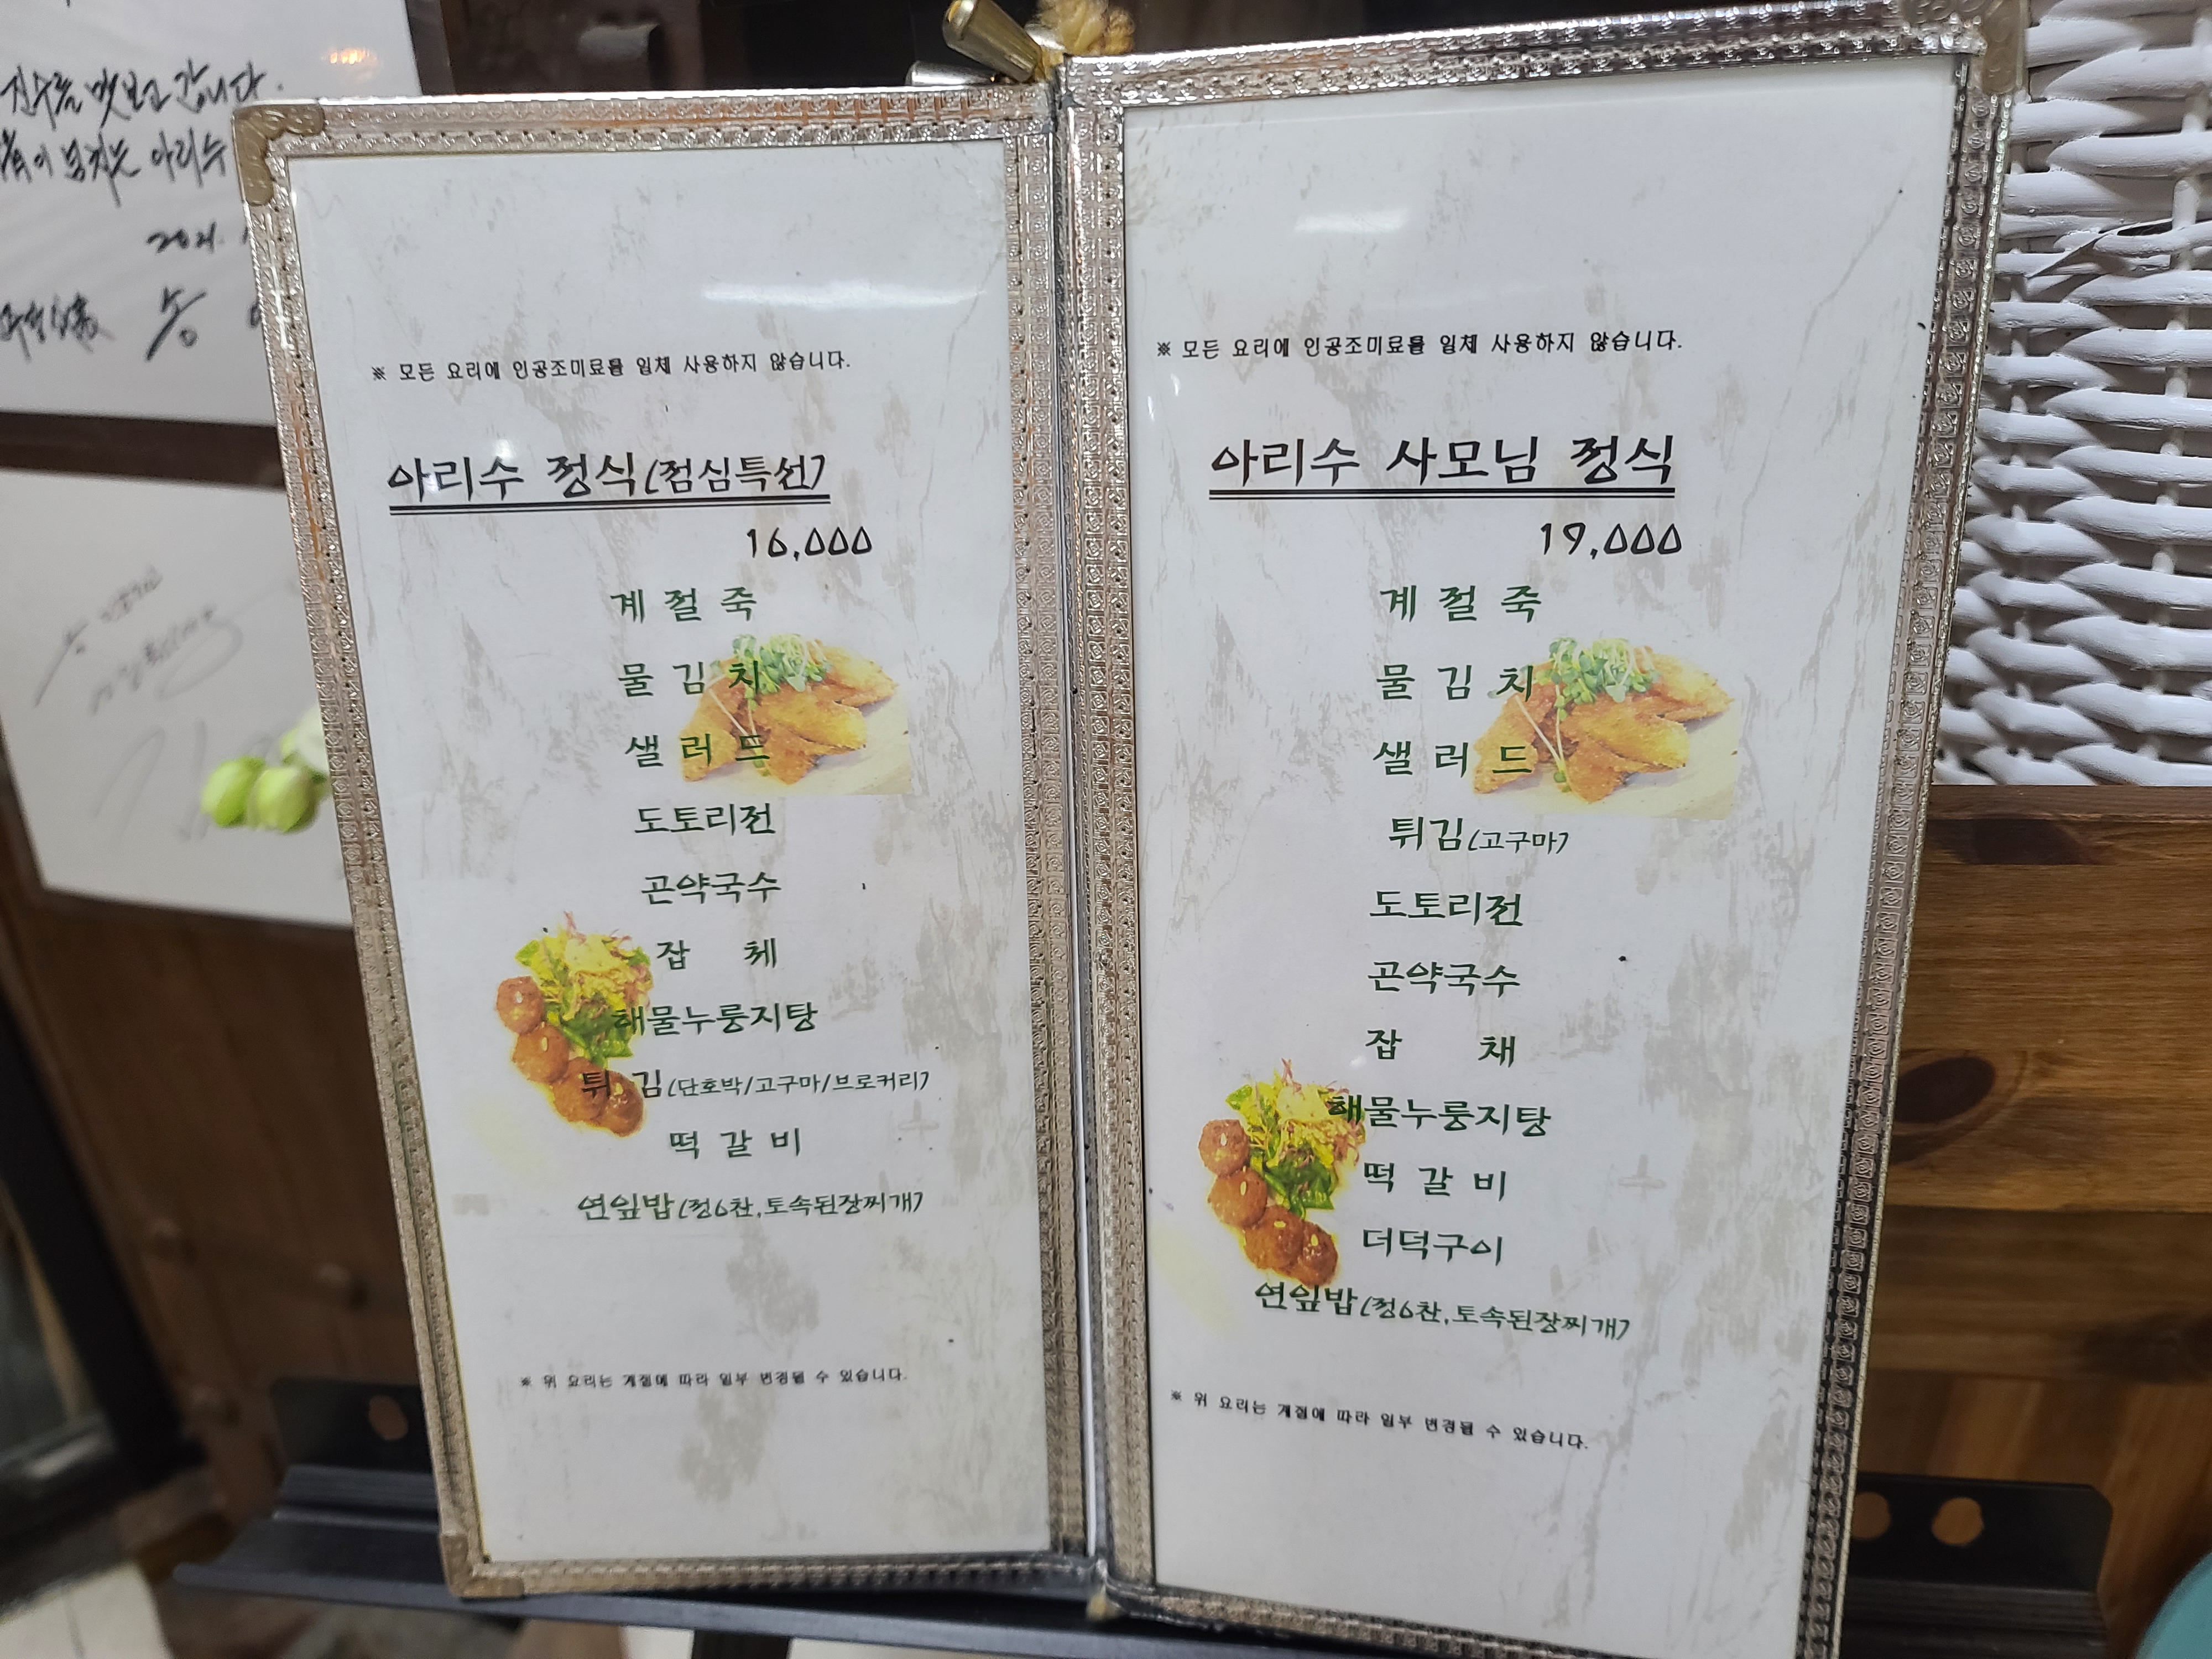 진수를 맛보고 갑니다.
넘치는 아리수
2021.
※ 모든 요리에 인공조미료를 일체 사용하지 않습니다.
아리수 정식(점심특선)
16,000
계 절 죽
물 김 치
샐 러 드
도토리전
곤약국수
잡 체
해물누룽지탕
튀 김(단호박/고구마/브로커리)
떡 갈 비
연잎밥(정6찬,토속된장찌개)
※ 위 요리는 계절에 따라 일부 변경될 수 있습니다.
※ 모든 요리에 인공조미료를 일체 사용하지 않습니다.
아리수 사모님 정식
19,000
계 절 죽
물 김 치
샐 러 드
튀김(고구마)
도토리전
곤약국수
잡 채
해물누룽지탕
떡 갈 비
더덕구이
연잎밥(정6찬,토속된장찌개)
※ 위 요리는 계절에 따라 일부 변경될 수 있습니다.